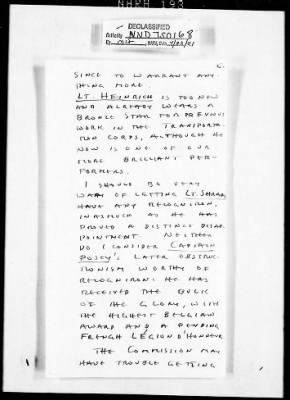 NHRH 193
DECLASSIFIED
Authority NND 750168
6.
SINCE TO WARRANT ANY-
THING MORE.
LT. HEINRICH IS TOO NEW
AND ALREADY WEARS A
BRONZE STAR FOR PREVIOUS
WORK IN THE TRANSPORTA-
TION CORPS, ALTHOUGH HE
NOW IS ONE OF OUR
MORE BRILLIANT PER-
FORMERS.
I SHOULD BE VERY
WARY OF LETTING LT. SHRADY
HAVE ANY RECOGNITION,
INASMUCH AS HE HAS
PROVED A DISTINCT DISAP-
POINTMENT. NEITHER
DO I CONSIDER CAPTAIN
POSEY'S LATER OBSTRUC-
TIONISM WORTHY OF
RECOGNITION: HE HAS
RECEIVED THE BULK
OF THE GLORY, WITH
THE HIGHEST BELGIAN
AWARD AND A PENDING
FRENCH LÉGION D'HONNEUR.
THE COMMISSION MAY
HAVE TROUBLE GETTING